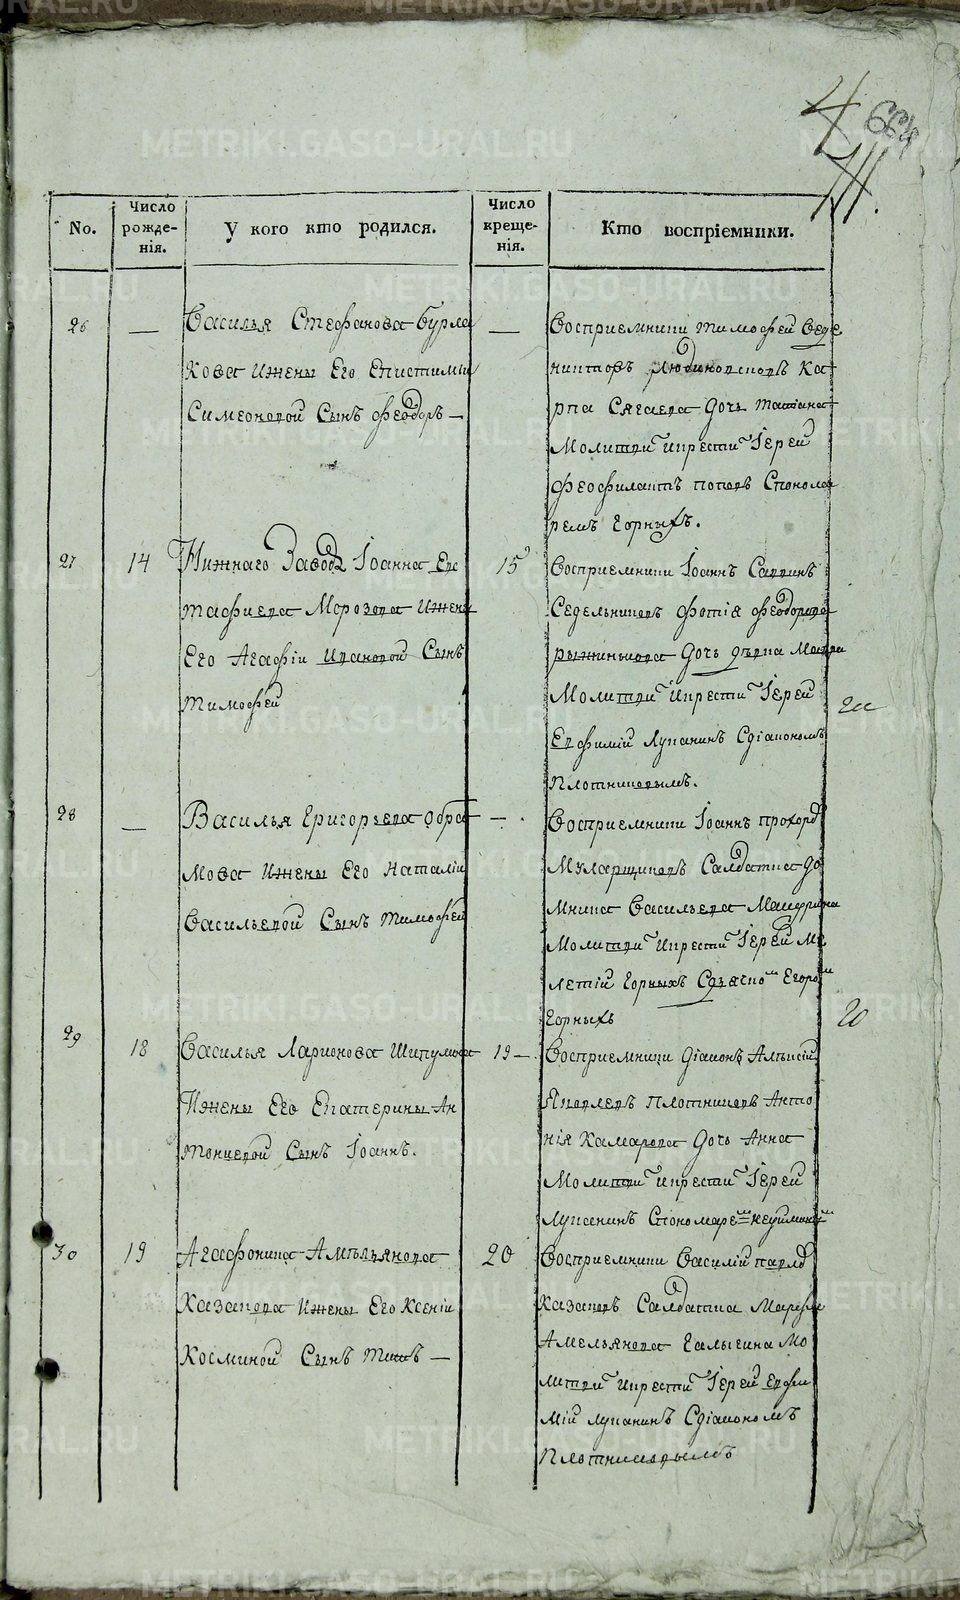 4 664
No.
Число рожде-нія.
У кого кто родился.
Число креще-нія.
Кто воспріемники.
26 —
Василья Стефанова Бурма
кова и жены Его Епистиміи
Симеоновой Сынъ Феодоръ —
—
Восприемники Тимофей
Ка
рпа дочь Татіана
Молитвил и крестил Іерей
Феофилактъ Поповъ Спонома
ремъ Горныхъ.
27 14
Нижнаго Завода Іоанна Евс
тафиева Морозова и жены
Его Агафіи Ивановой Сынъ
Тимофей
15
Восприемники Іоаннъ Саввинъ
Седельниковъ Фотія Феодорова
дочь дѣвка
Молитвил и крестил Іерей
Евфимій Лукинъ Сдіакономъ
Плотниковымъ.
28 —
Василья Григорьева Обра
мова и жены Его Наталіи
Васильевой Сынъ Тимофей
—
Восприемники Іоаннъ Прохоро
Муларщиковъ Салдатка До
мника Васильева
Молитвил и крестил Іерей Ме
летій Горныхъ Сдьячко Егоро
Горныхъ
20
29 18
Василья Ларионова Шипулина
И жены Его Екатерины Ан
тоновой Сынъ Іоаннъ.
19 —
Восприемники Діаконъ Алексій
Яковлевъ Плотниковъ Анто
нія Камарова дочь Анна
Молитвил и крестил Іерей
Лукинъ Спономаре
30 19
Агафоника Амельянова
Казакова и жены Его Ксеніи
Косминой Сынъ Титъ —
20
Восприемники Василій Павло
Казаковъ Салдатка Марфа
Амельянова Галыгина Мо
литвил и крестил Іерей Евфи
мій Лукинъ Сдіакономъ
Плотниковымъ